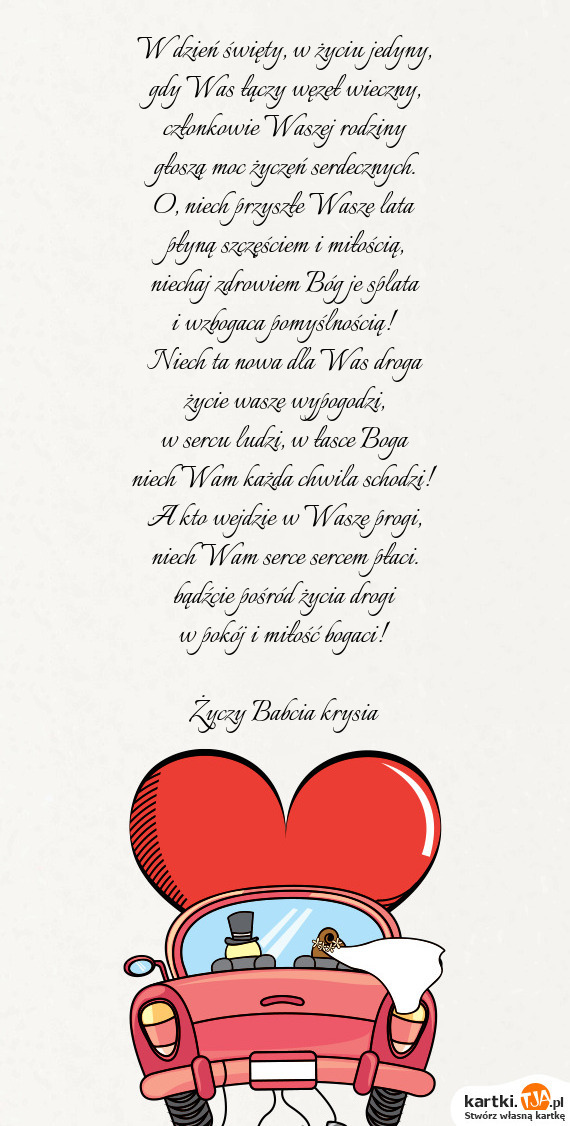 W dzień święty, w życiu jedyny,
gdy Was łączy węzeł wieczny,
członkowie Waszej rodziny
głoszą moc życzeń serdecznych.
O, niech przyszłe Wasze lata
płyną szczęściem i miłością,
niechaj zdrowiem Bóg je splata
i wzbogaca pomyślnością!
Niech ta nowa dla Was droga
życie wasze wypogodzi,
w sercu ludzi, w łasce Boga
niech Wam każda chwila schodzi!
A kto wejdzie w Wasze progi,
niech Wam serce sercem płaci.
bądźcie pośród życia drogi
w pokój i miłość bogaci!
Życzy Babcia krysia
kartki.TJA.pl
Stwórz własną kartkę